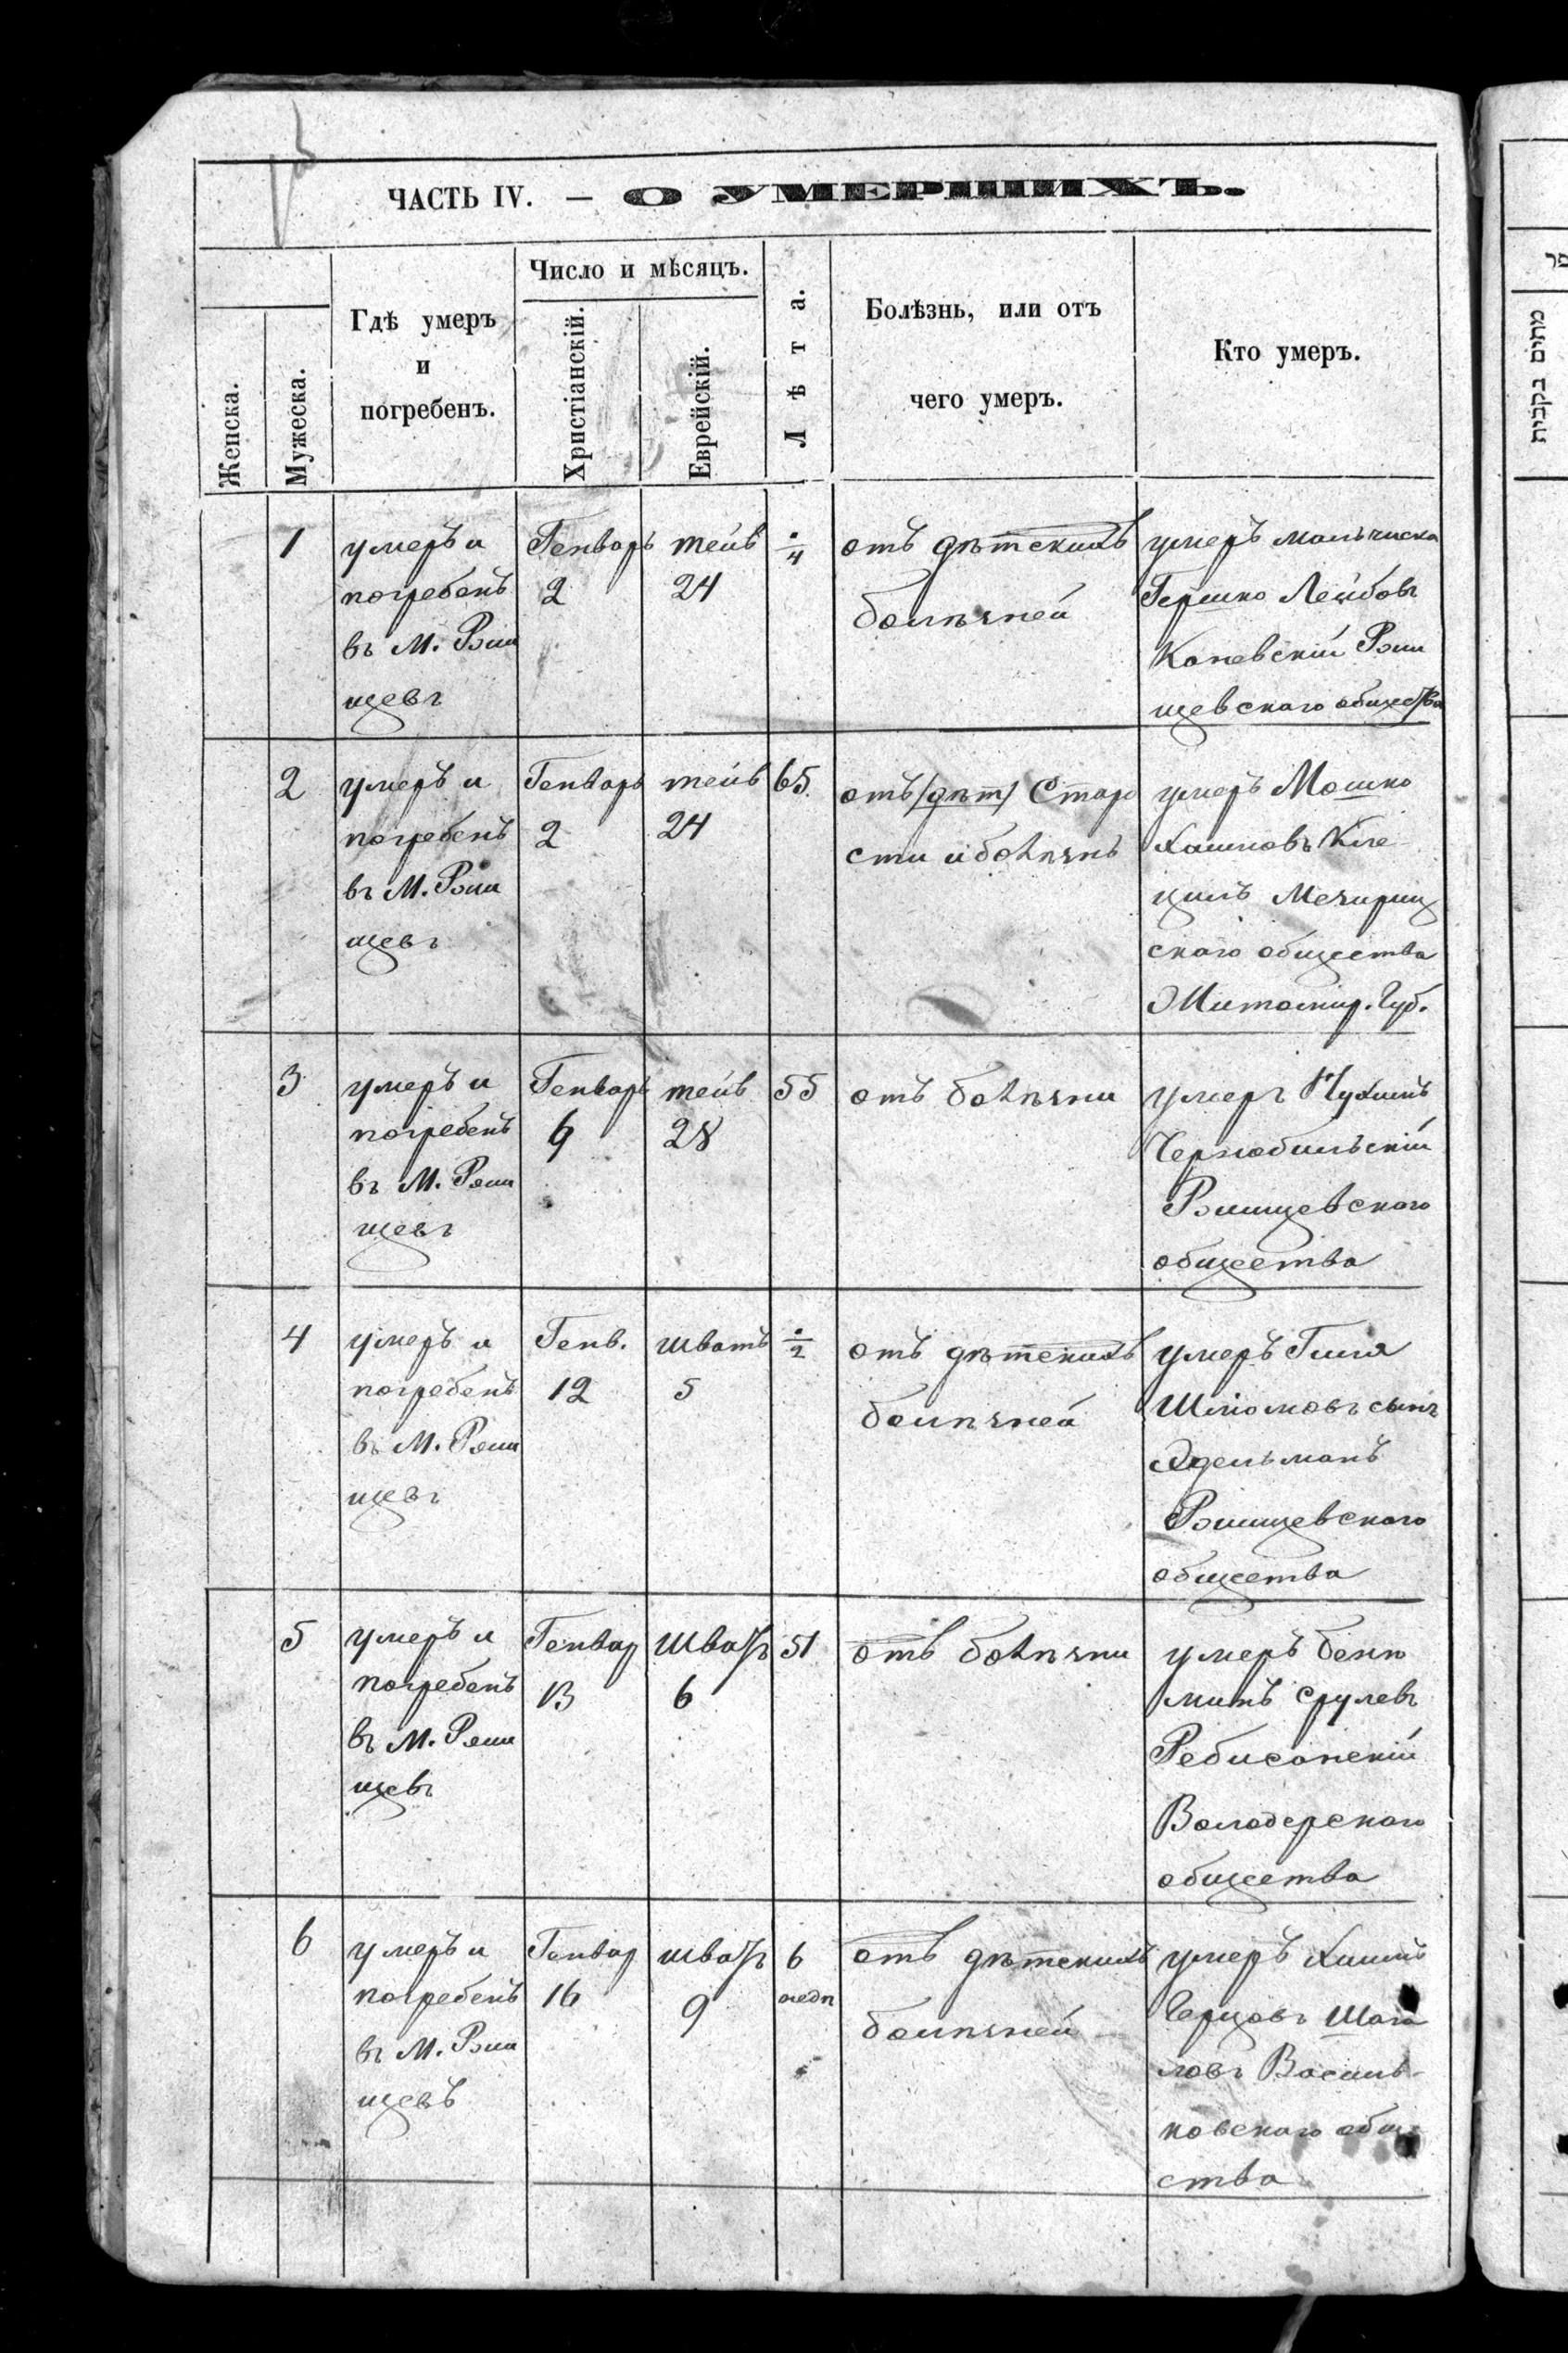 ЧАСТЬ IV. — О УМЕРШИХЪ.
Женска.
Мужеска.
Гдѣ умеръ
и
погребенъ.
Число и мѣсяцъ.
Христіанскій.
Еврейскій.
Лѣта.
Болѣзнь, или отъ
чего умеръ.
Кто умеръ.
1
умеръ и
погребенъ
въ М. Рзи
щевъ
Генварь
2
тейв
24
•/4
отъ дѣтскихъ
болѣзней
умеръ мальчиска
Гершко Лейбовъ
Каневскій Рзи
щевскаго общества
2
умеръ и
погребенъ
въ М. Рзи
щевъ
Генварь
2
тейв
24
65.
отъ /дѣт/ Старо
сти и болѣзнѣ
умеръ Мошко
скаго общества
Житомир. Губ.
3
умеръ и
погребенъ
въ М. Рзи
щевъ
Генварь
6
тейв
28
55
отъ болѣзни
умеръ Нухимъ
Чернобильскій
Рзищевскаго
общества
4
умеръ и
погребенъ
въ М. Рзи
щевъ
Генв.
12
шватъ
5
•/2
отъ дѣтскихъ
болѣзней
умеръ
Шліомовъ сынъ
Эдельманъ
Рзищевскаго
общества
5
умеръ и
погребенъ
въ М. Рзи
щевъ
Генвар
13
шватъ
6
51
отъ болѣзни
умеръ Беню
минъ Срулевъ
Володерскаго
общества
6
умеръ и
погребенъ
въ М. Рзи
щевъ
Генвар
16
шватъ
9
6
недѣ
отъ дѣтскихъ
болѣзней
умеръ Хаимъ
Герцовъ
Василь-
ковскаго обще
ства
פר
מתים בקבית